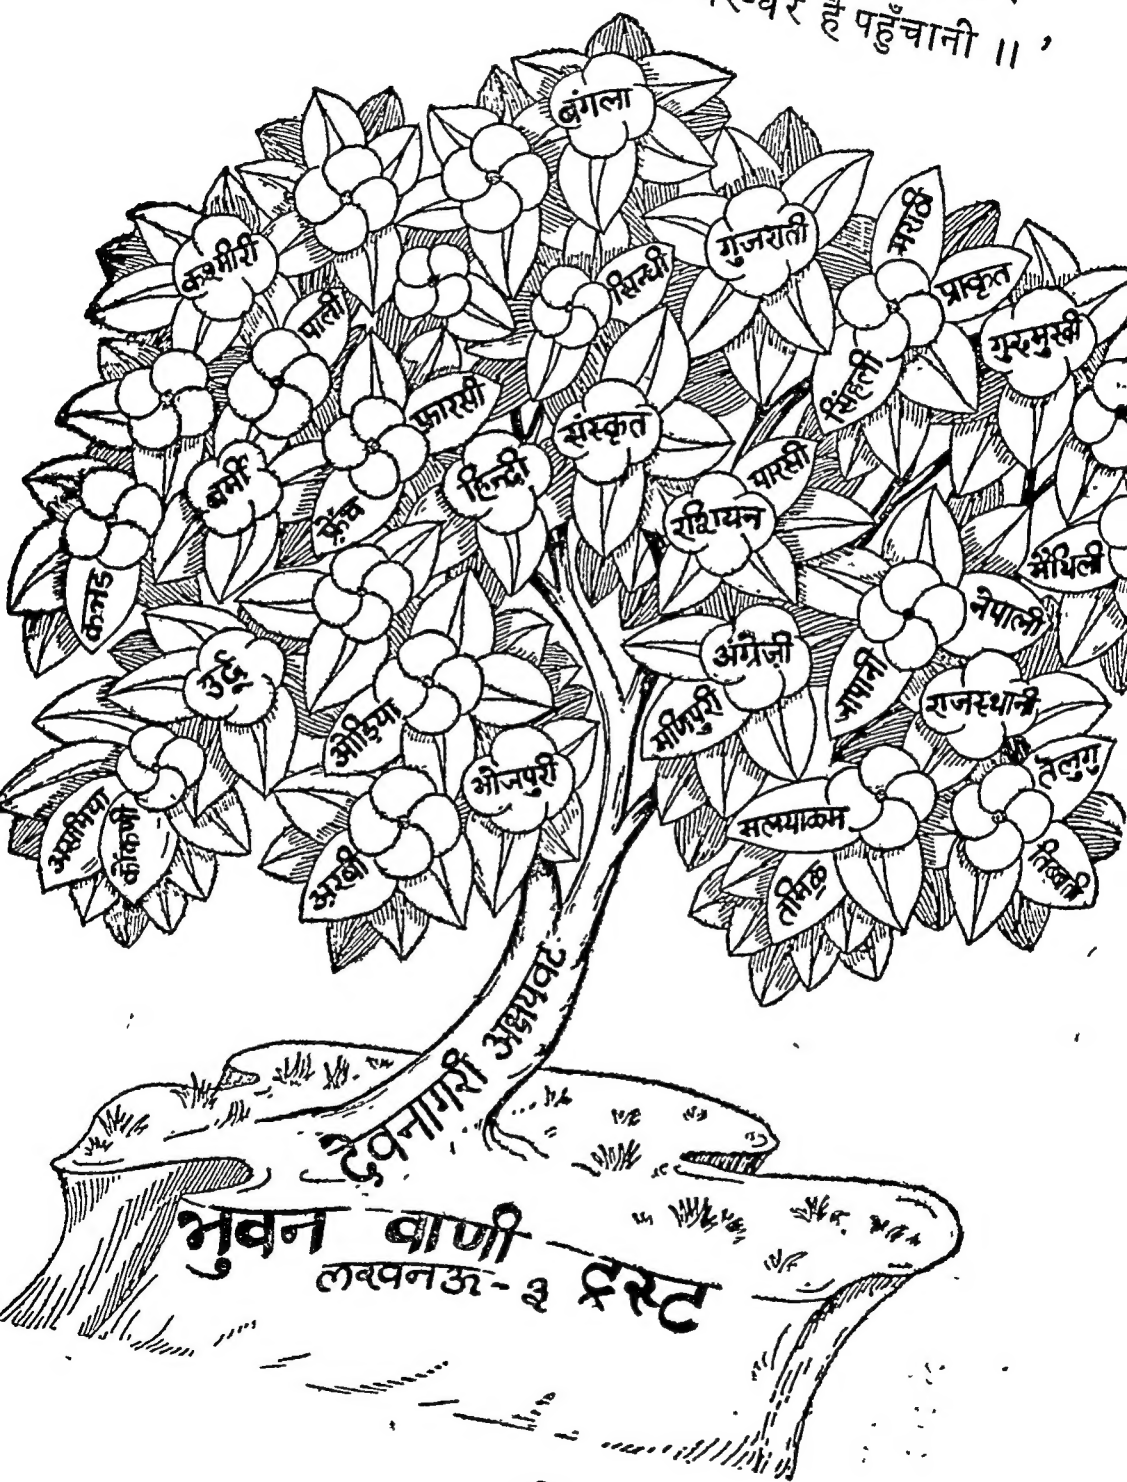 है पहुँचानी ॥ ’
बंगला
कश्मीरी
गुजराती
मराठी
सिन्धी
प्राकृत
पाली
गुरुमुखी
सिंहली
फ़ारसी
संस्कृत
हिन्दी
पारसी
बर्मी
फ़्रेंच
रशियन
मैथिली
कन्नड
नेपाली
उर्दू
अंग्रेज़ी
जापानी
राजस्थानी
ओड़िया
मणिपुरी
तेलुगु
भोजपुरी
असमिया
कोंकणी
मलयाळम
अ़रबी
तमिळ
तिब्बती
देवनागरी अक्षयवट
भुवन वाणी ट्रस्ट
लखनऊ-३